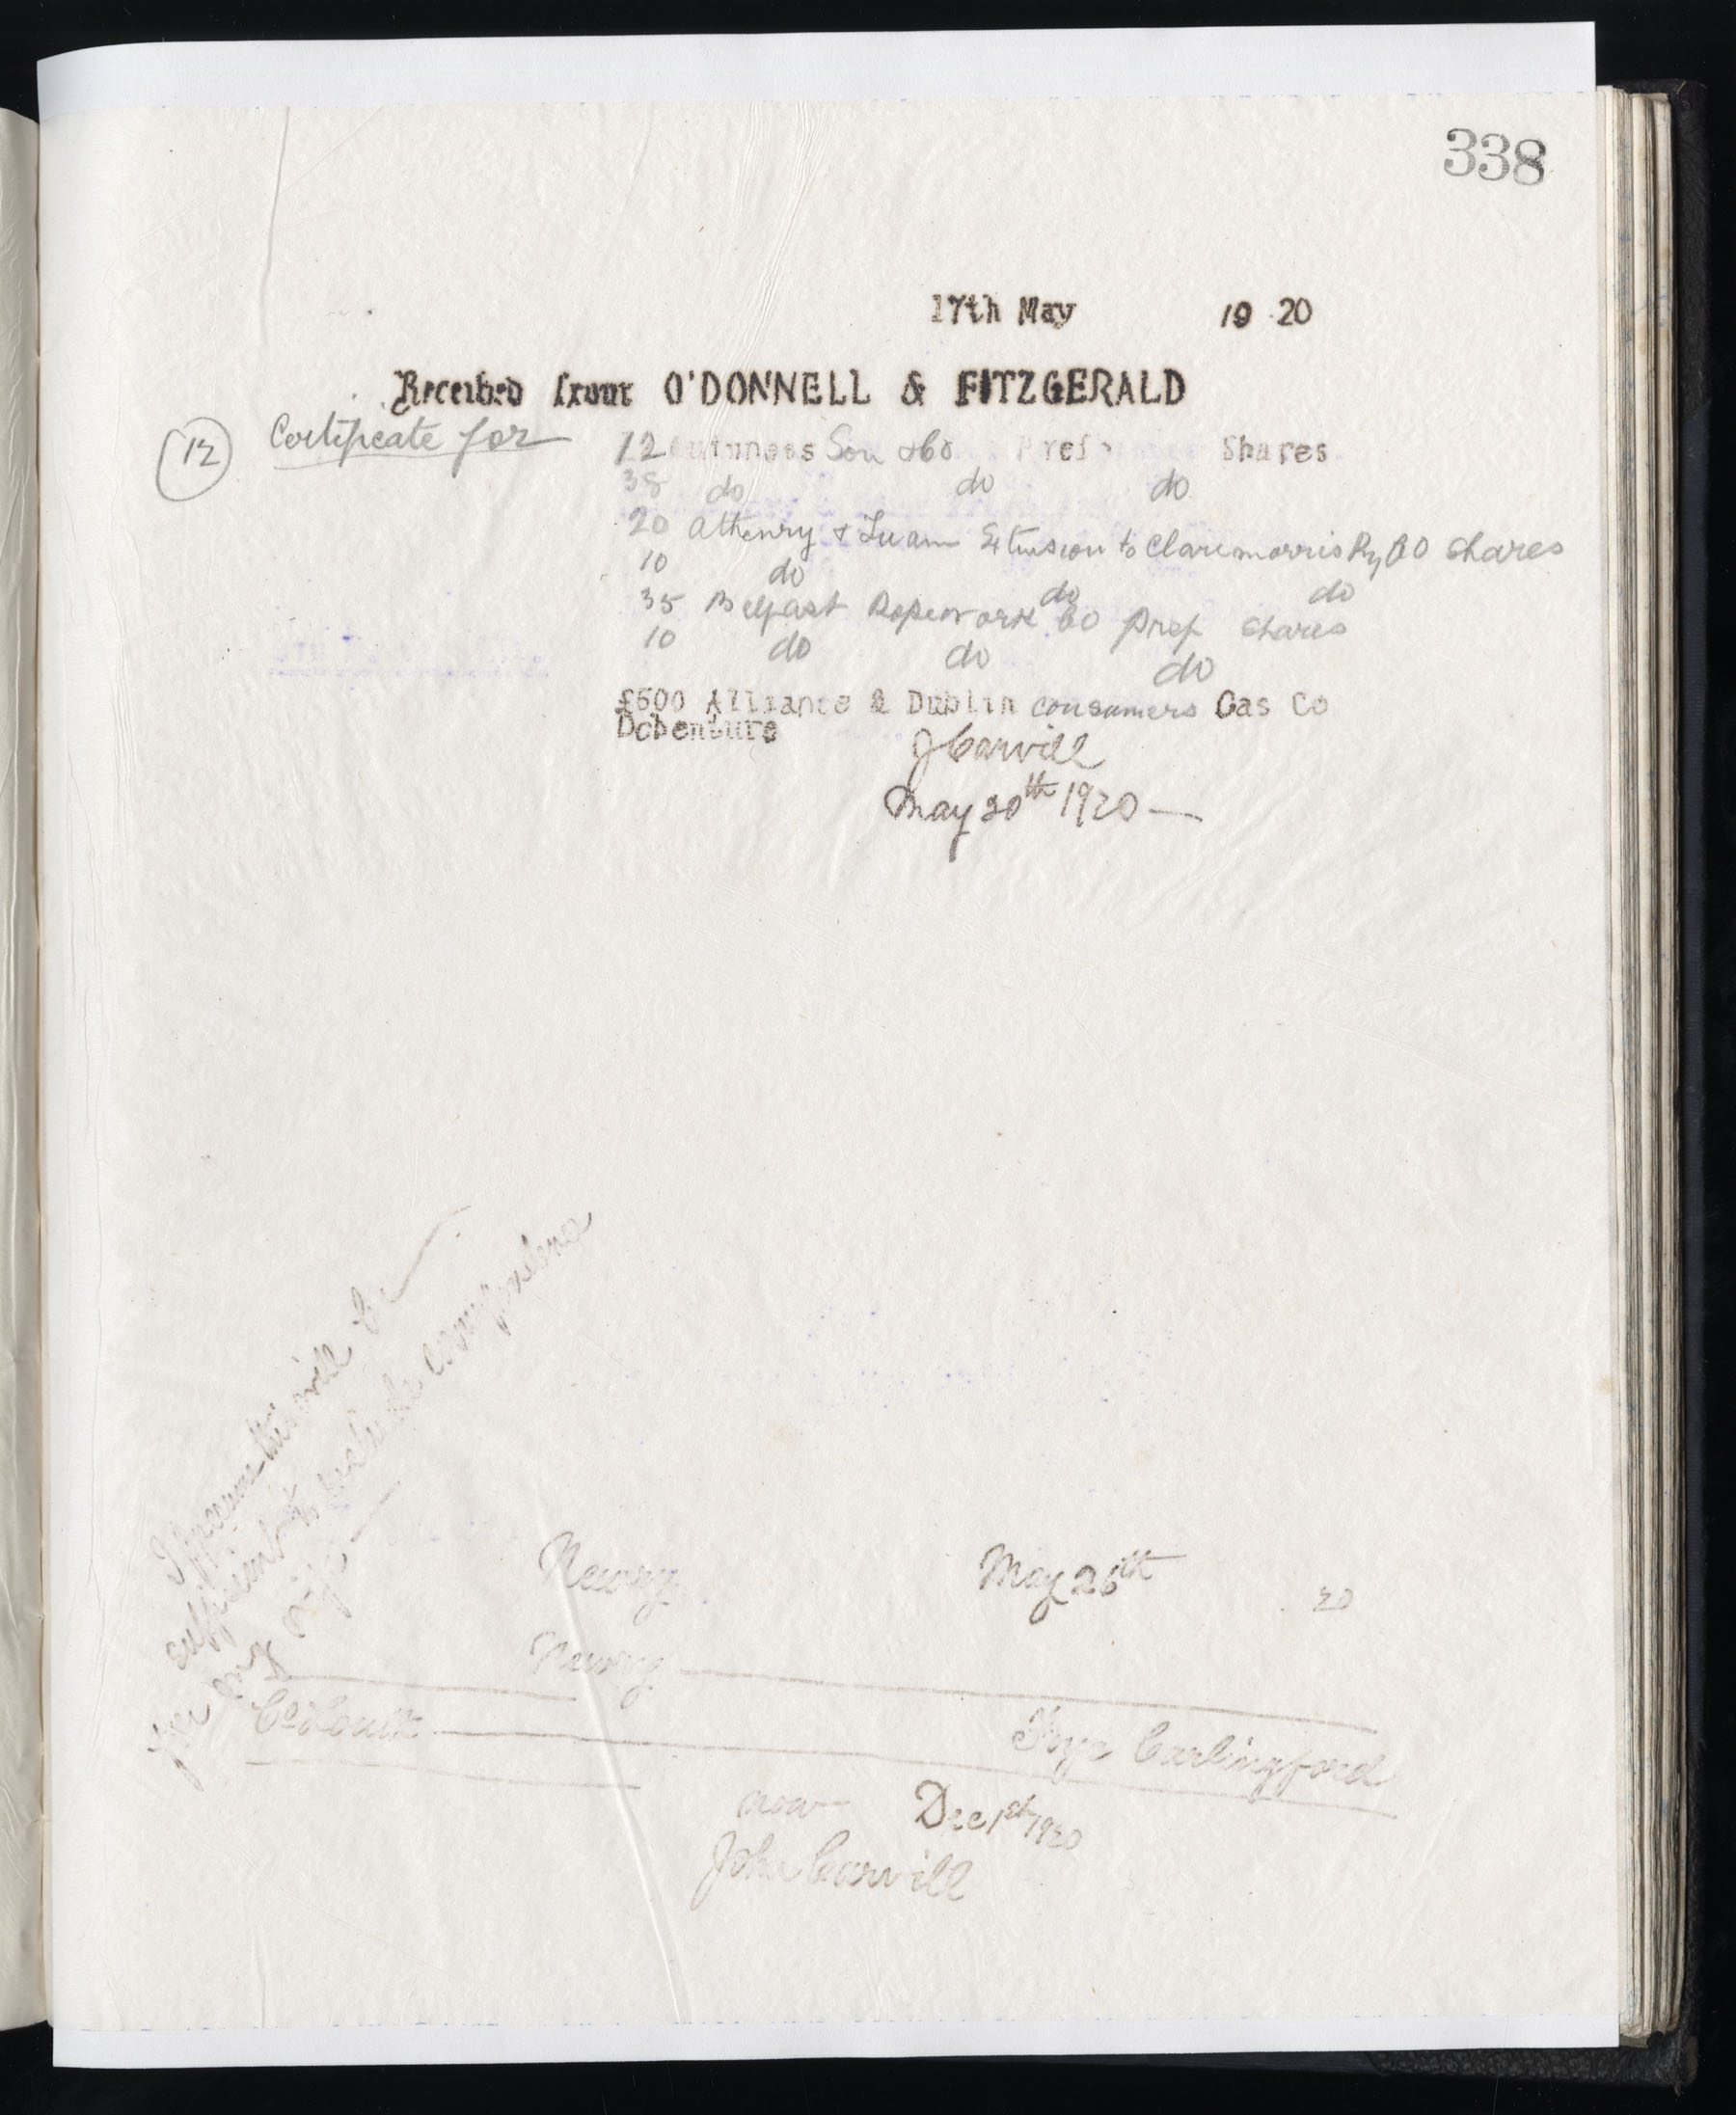 338
17th May 1920
Received from O'DONNELL & FITZGERALD
(12) Certificate for 12 Guinness Son & Co Pref Shares
38 do do do
20 Athenry & Tuam Extension to Claremorris Ry Co Shares
10 do do do
35 Belfast Ropework Co Pref Shares
10 do do do
£500 Alliance & Dublin consumers Gas Co
Debenture
J Carvill
May 20th 1920
I presume this will be
sufficient to
for any
Newry May 26th 20
Newry
Co Louth Carlingford
now Dec 1st 1920
John Carvill